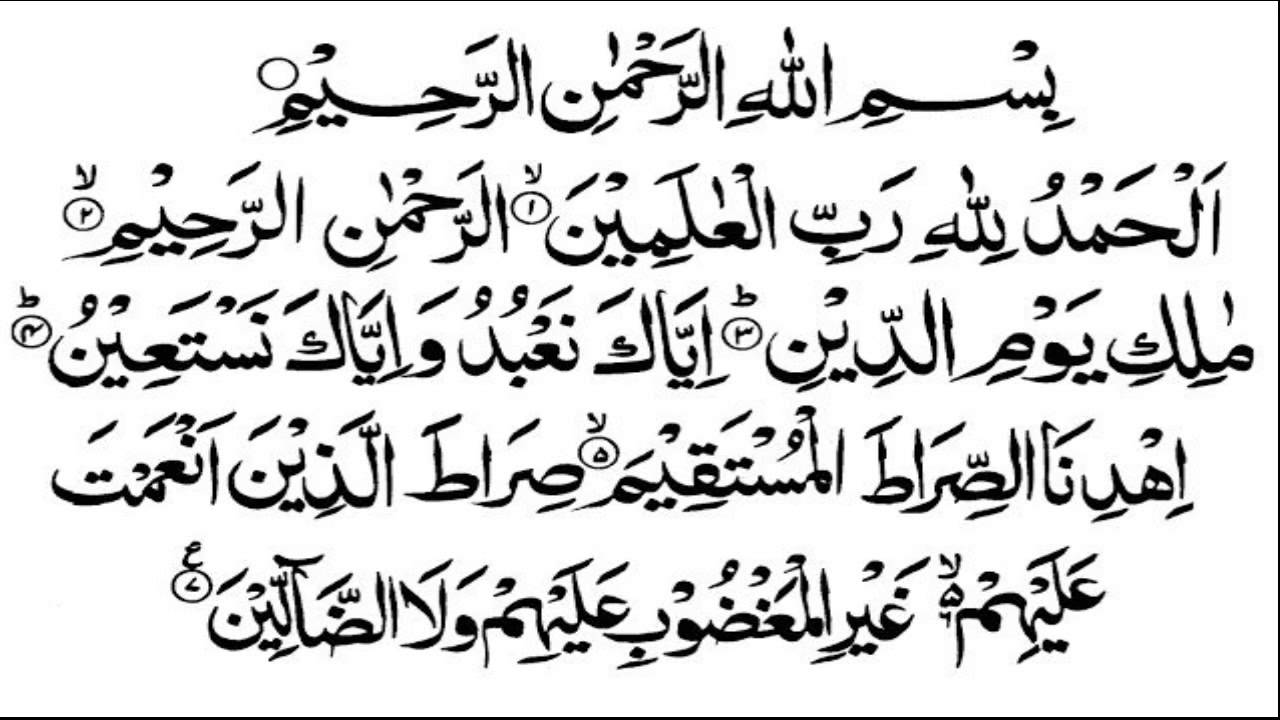 بِسْمِ اللهِ الرَّحْمٰنِ الرَّحِيْمِ ○
اَلْحَمْدُ لِلّٰهِ رَبِّ الْعٰلَمِيْنَ ۙ﴿۱﴾ الرَّحْمٰنِ الرَّحِيْمِ ۙ﴿۲﴾
مٰلِكِ يَوْمِ الدِّيْنِ ؕ﴿۳﴾ اِيَّاكَ نَعْبُدُ وَ اِيَّاكَ نَسْتَعِيْنُ ؕ﴿۴﴾
اِهْدِنَا الصِّرَاطَ الْمُسْتَقِيْمَ ۙ﴿۵﴾ صِرَاطَ الَّذِيْنَ اَنْعَمْتَ
عَلَيْهِمْ ۙ۬ۦ غَيْرِ الْمَغْضُوْبِ عَلَيْهِمْ وَلَا الضَّآلِّيْنَ ﴿۷﴾ ع